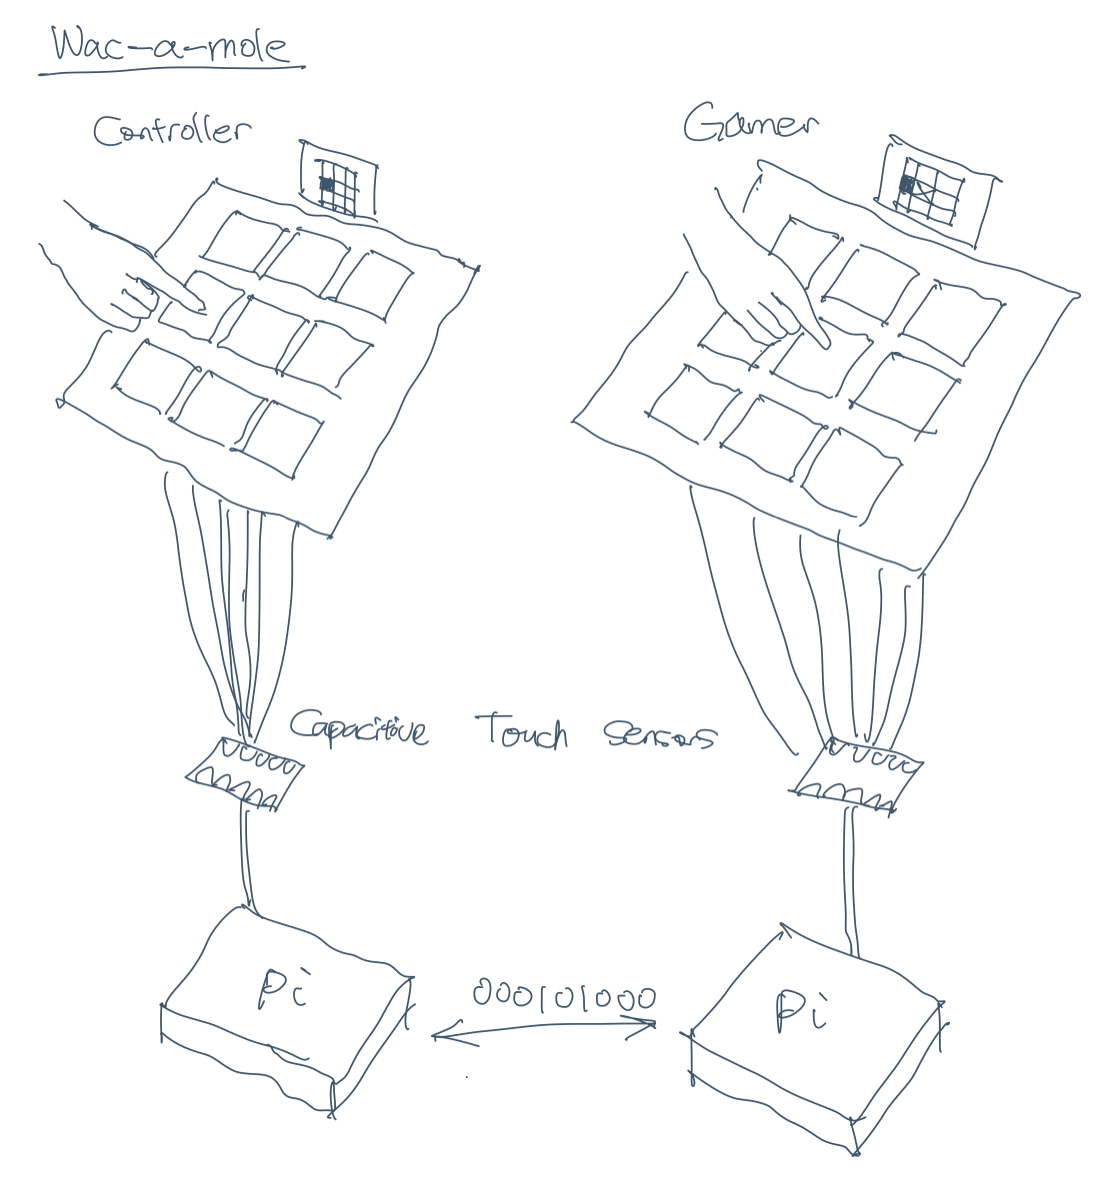 Wac-a-mole
Controller
Gamer
Capacitive Touch Sensors
Pi
000101000
Pi